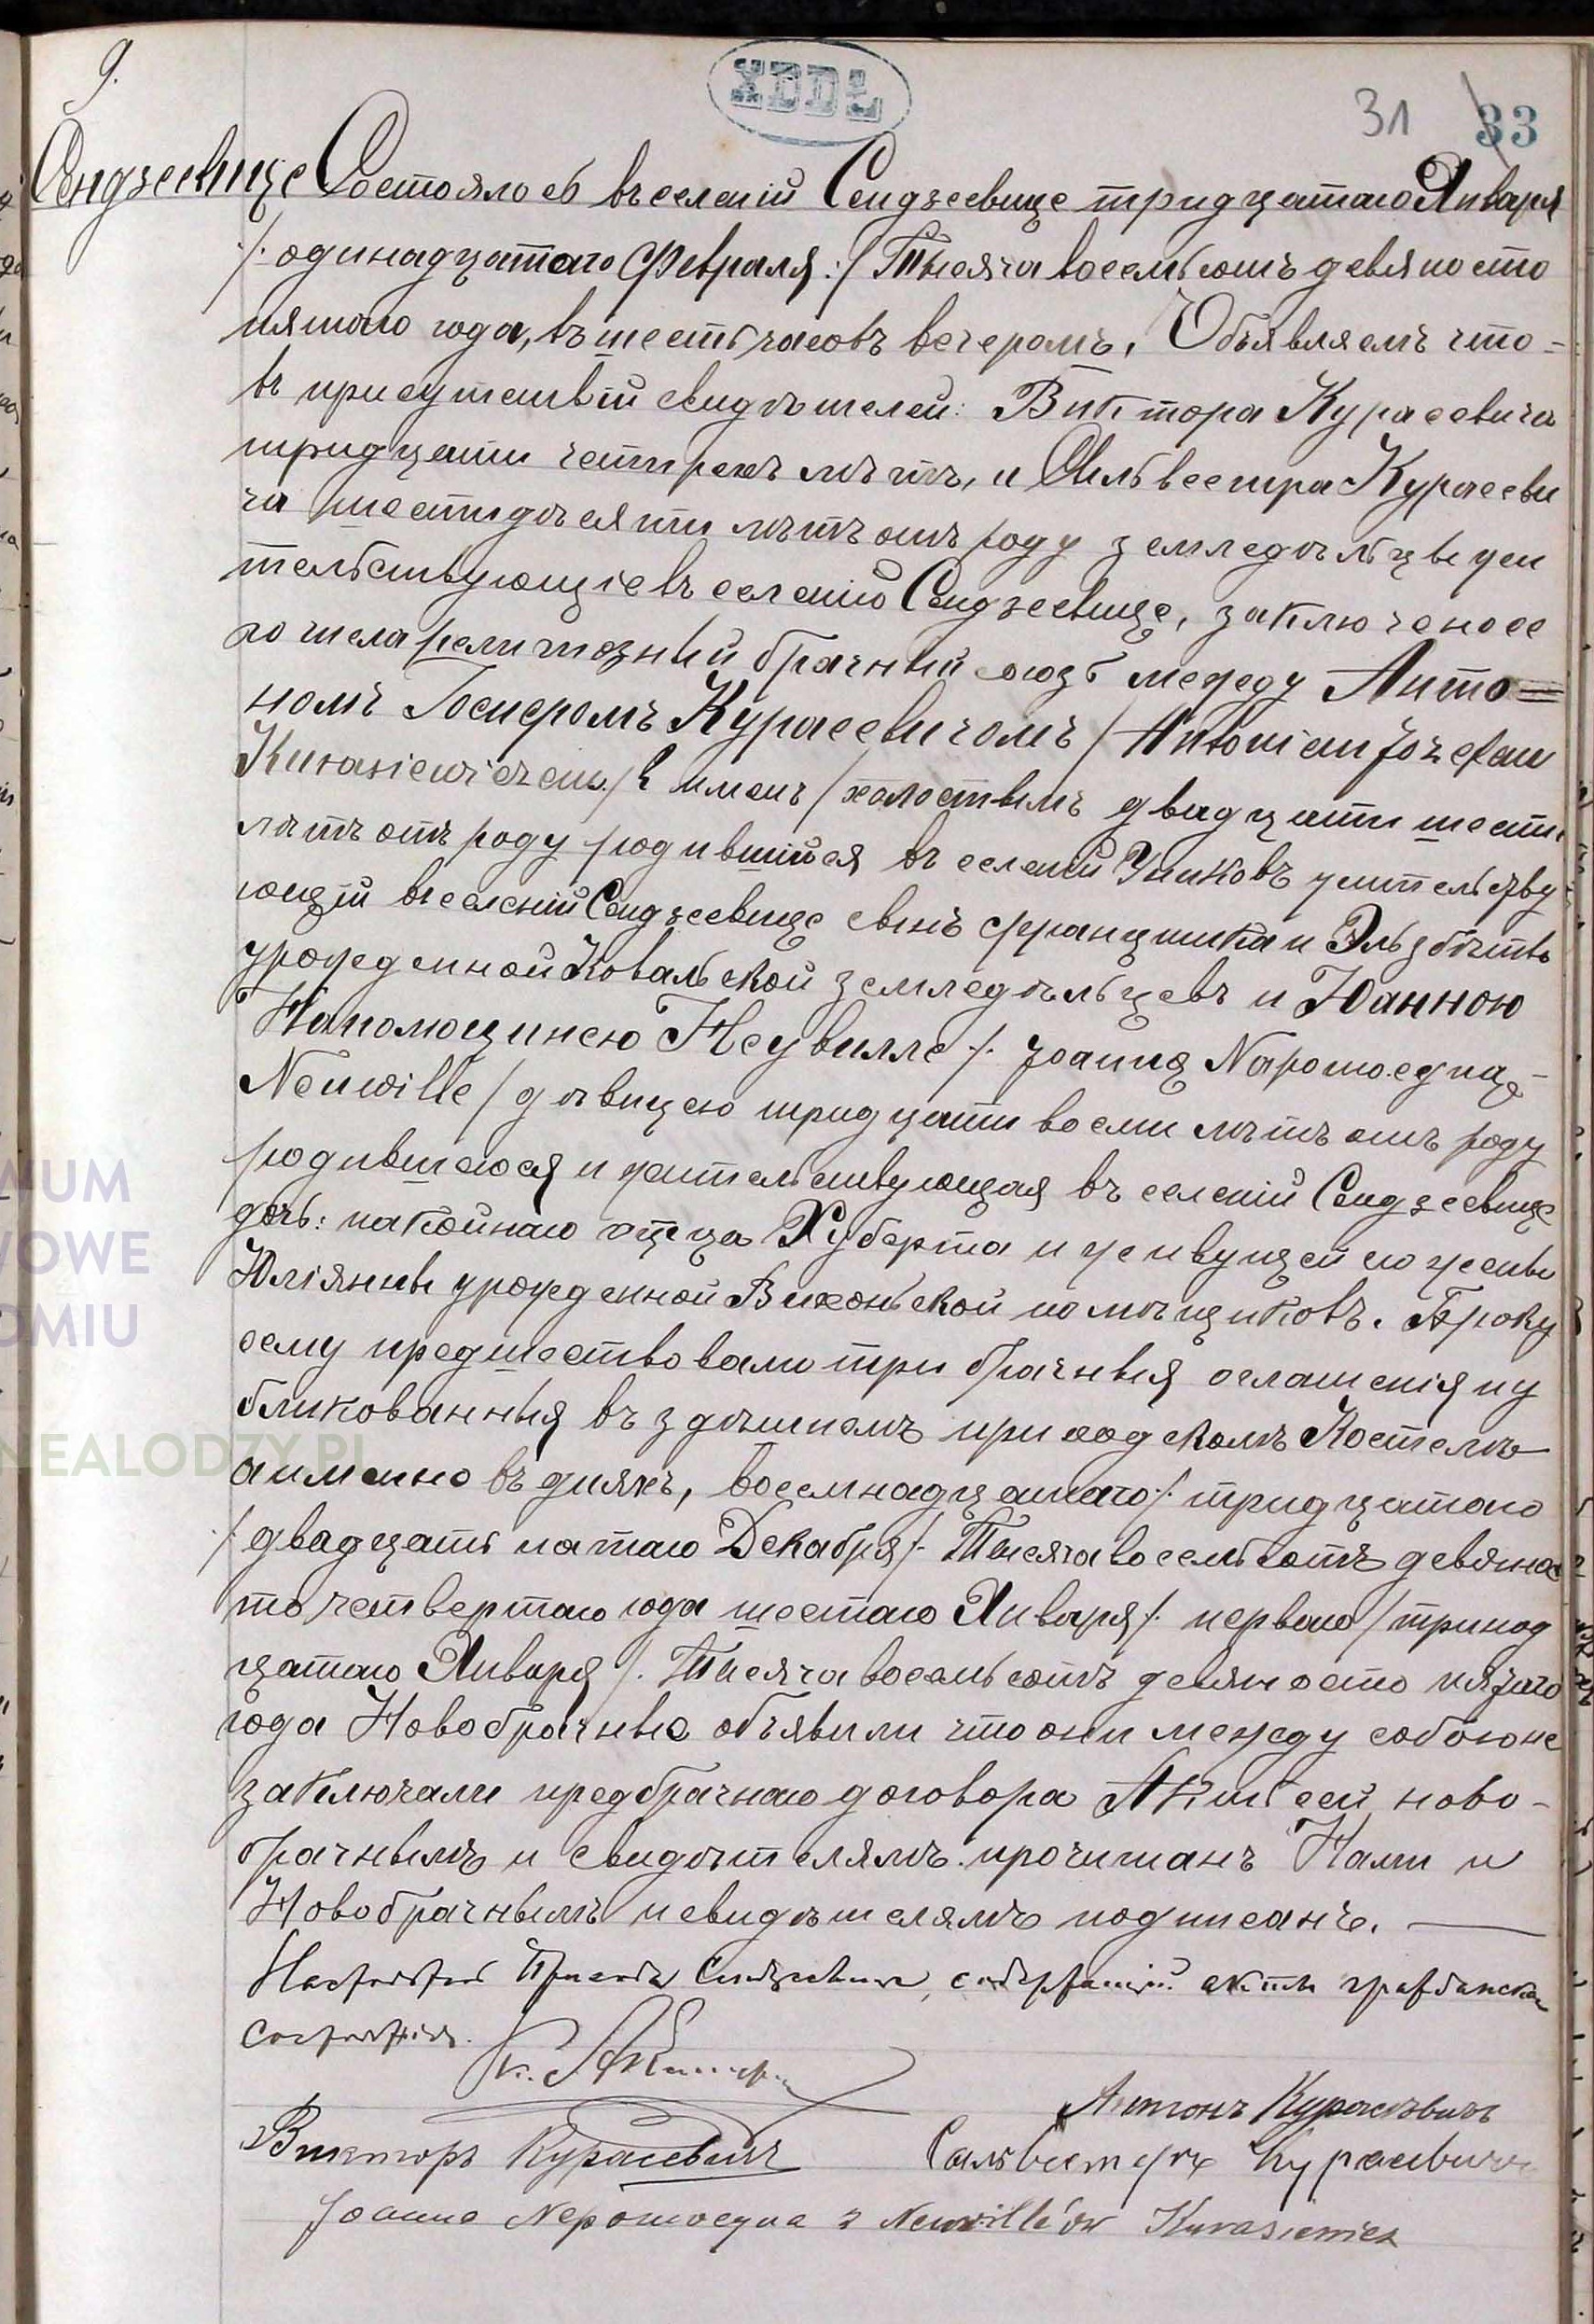 9.
XDDŁ
31 33
Сендзеевице Состоялось въ селеніи Сендзеевице тридцатаго Января
/: одинадцатаго Февраля :/ Тысяча восемьсотъ девяносто
пятаго года, въ шесть часовъ вечеромъ, Объявляемъ что =
въ присутствіи свидѣтелей: Виктора Курасевича
тридцати четырехъ лѣтъ, и Сильвестра Курасеви
ча шестидѣсяти лѣтъ отъ роду земледѣльцы жи
тельствующіе въ селеніи Сендзеевице, заключеное
го числа религіозный брачный союзъ между Анто=
номъ Госиеромъ Курасевичомъ / Antonien Józefem
Kurasiewiczem / 2 имень / холостымъ двадцати шести
лѣтъ отъ роду родившійся въ селеніи Униковъ жительству
ющій въ селеніи Сендзеевице сынъ Францишка и Эльзбѣты
урожденной Ковальской земледѣльцевъ и Юанною
Напомоцинею Неувилле /: Joanną Napomocyną -
Neuwille / дѣвицею тридцати восми лѣтъ отъ роду
родившеюся и жительствующая въ селеніи Сендзеевице
дочь: покойнаго отца Хуберта и живущей его жены
Юліянны урожденной Вихоньской помѣщиковъ. Браку
сему предшествовали три брачныя оглашенія пу
бликованныя въ здѣшнемъ приходскомъ Костелѣ
а именно въ дняхъ, восемнадцатаго /: тридцатаго
/: двадцать пятаго Декабря /: Тысяча восемьсотъ девяно
то четвертаго года шестаго Января /: перваго / тринад
цатаго Января /. Тысяча восемьсотъ девяносто пятаго
года Новобрачные объявили что они между собою не
заключали предбрачнаго договора Актъ сей ново-
брачнымъ и свидѣтелямъ прочитанъ Нами и
Новобрачнымъ и свидѣтелямъ подписанъ.
Настоятель Прихода Сендзеевице, содержащій акты гражданска
состоянія.
Антонъ Курасѣвичъ
Викторъ Курасевичъ Сальвестеръ Курасевичъ
Joanna Nepomocyna z Neuvillé'ów Kurasiewicz
NEALODZY.PL